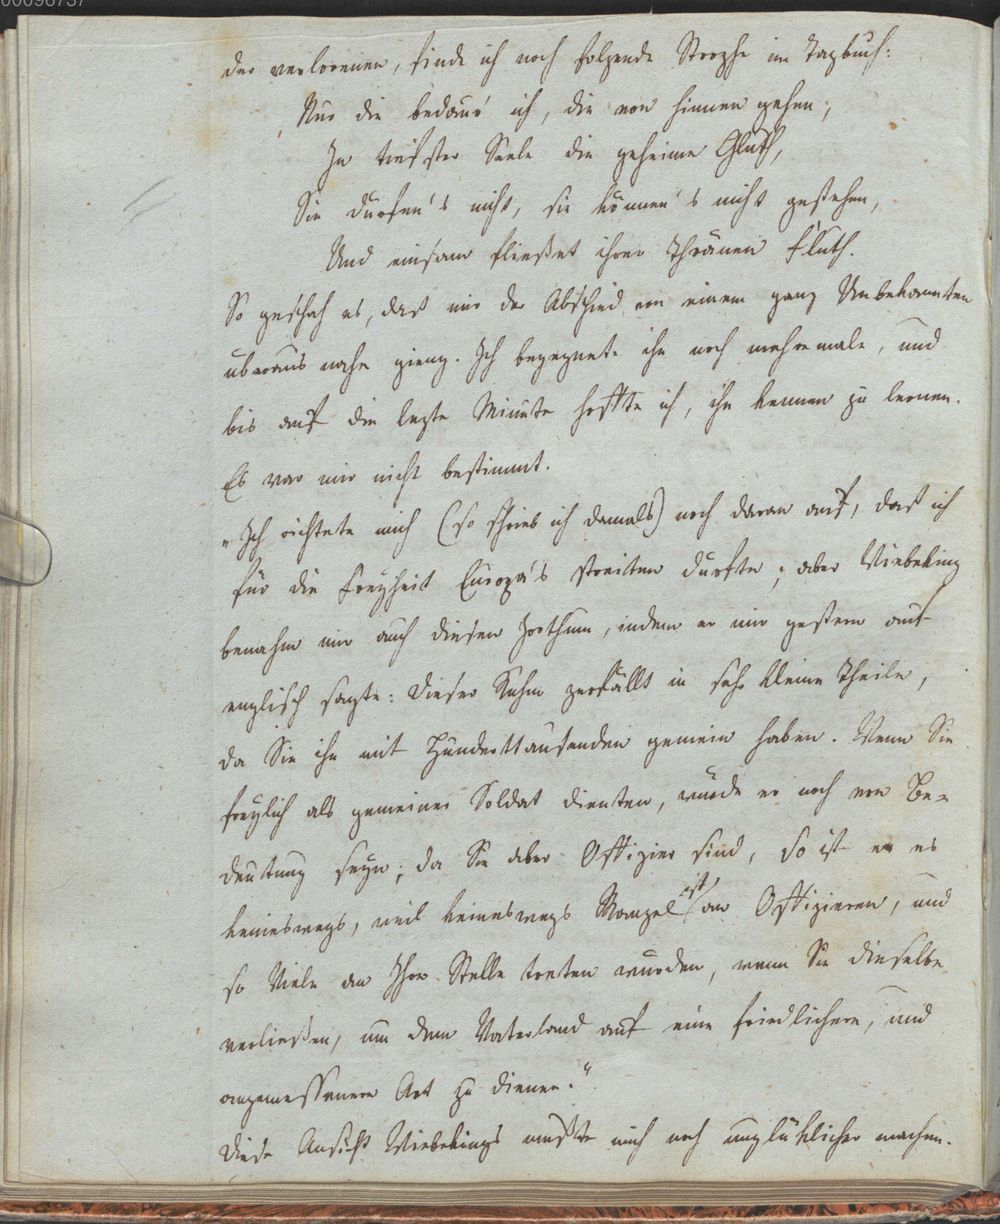 00096737
der verlorenen, finde ich noch folgende Strophe im Tagbuch:
Nur die bedaur' ich, die von hinnen gehen;
In tiefster Seele die geheime Gluth,
Sie durfen's nicht, sie können's nicht gestehen,
Und einsam fließet ihrer Thränen Fluth.
So geschah es, daß mir der Abschied von einem ganz Unbekannten
überaus nahe gieng. Ich begegnete ihm noch mehremale, und
bis auf die lezte Minute hoffte ich, ihn kennen zu lernen.
Es war mir nicht bestimmt.
"Ich richtete mich (so schrieb ich damals) noch daran auf, daß ich
für die Freyheit Europa's streiten durfte; aber Wiebeking
benahm mir auch diesen Irrthum, indem er mir gestern auf
englisch sagte: Dieser Ruhm zerfällt in sehr kleine Theile,
da Sie ihn mit Hunderttausenden gemein haben. Wenn Sie
freylich als gemeiner Soldat dienten, würde er noch von Be-
deutung seyn; da Sie aber Offizier sind, so ist er es
keineswegs, weil keineswegs Mangel ist an Offizieren, und
so Viele an Ihre Stelle treten würden, wenn Sie dieselbe
verließen, um dem Vaterland auf eine friedlichere, und
angemessenere Art zu dienen."
Diese Ansicht Wiebekings mußte mich noch unglüklicher machen.